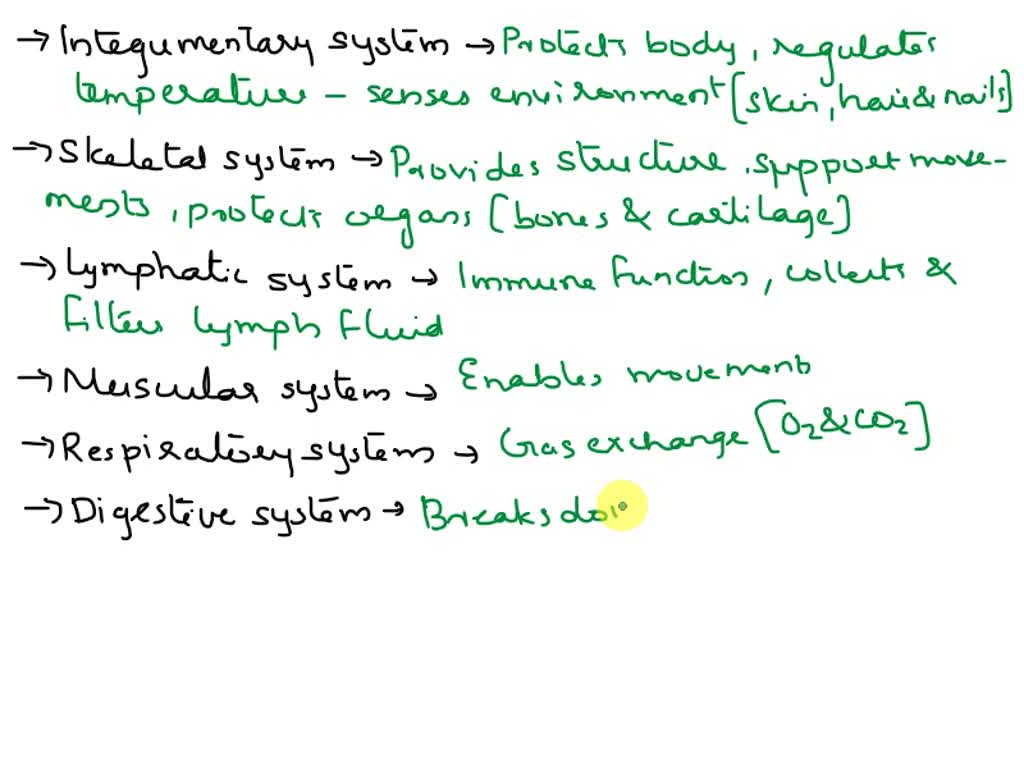 → Integumentary system → Protects body, regulates
temperature - senses environment [skin, hair & nails]
→ Skeletal system → Provides structure, support move-
ments, protects organs [bones & cartilage]
→ Lymphatic system → Immune function, collects &
filters lymph fluid
→ Muscular system → Enables movements
→ Respiratory system → Gas exchange [O₂ & CO₂]
→ Digestive system → Breaks do